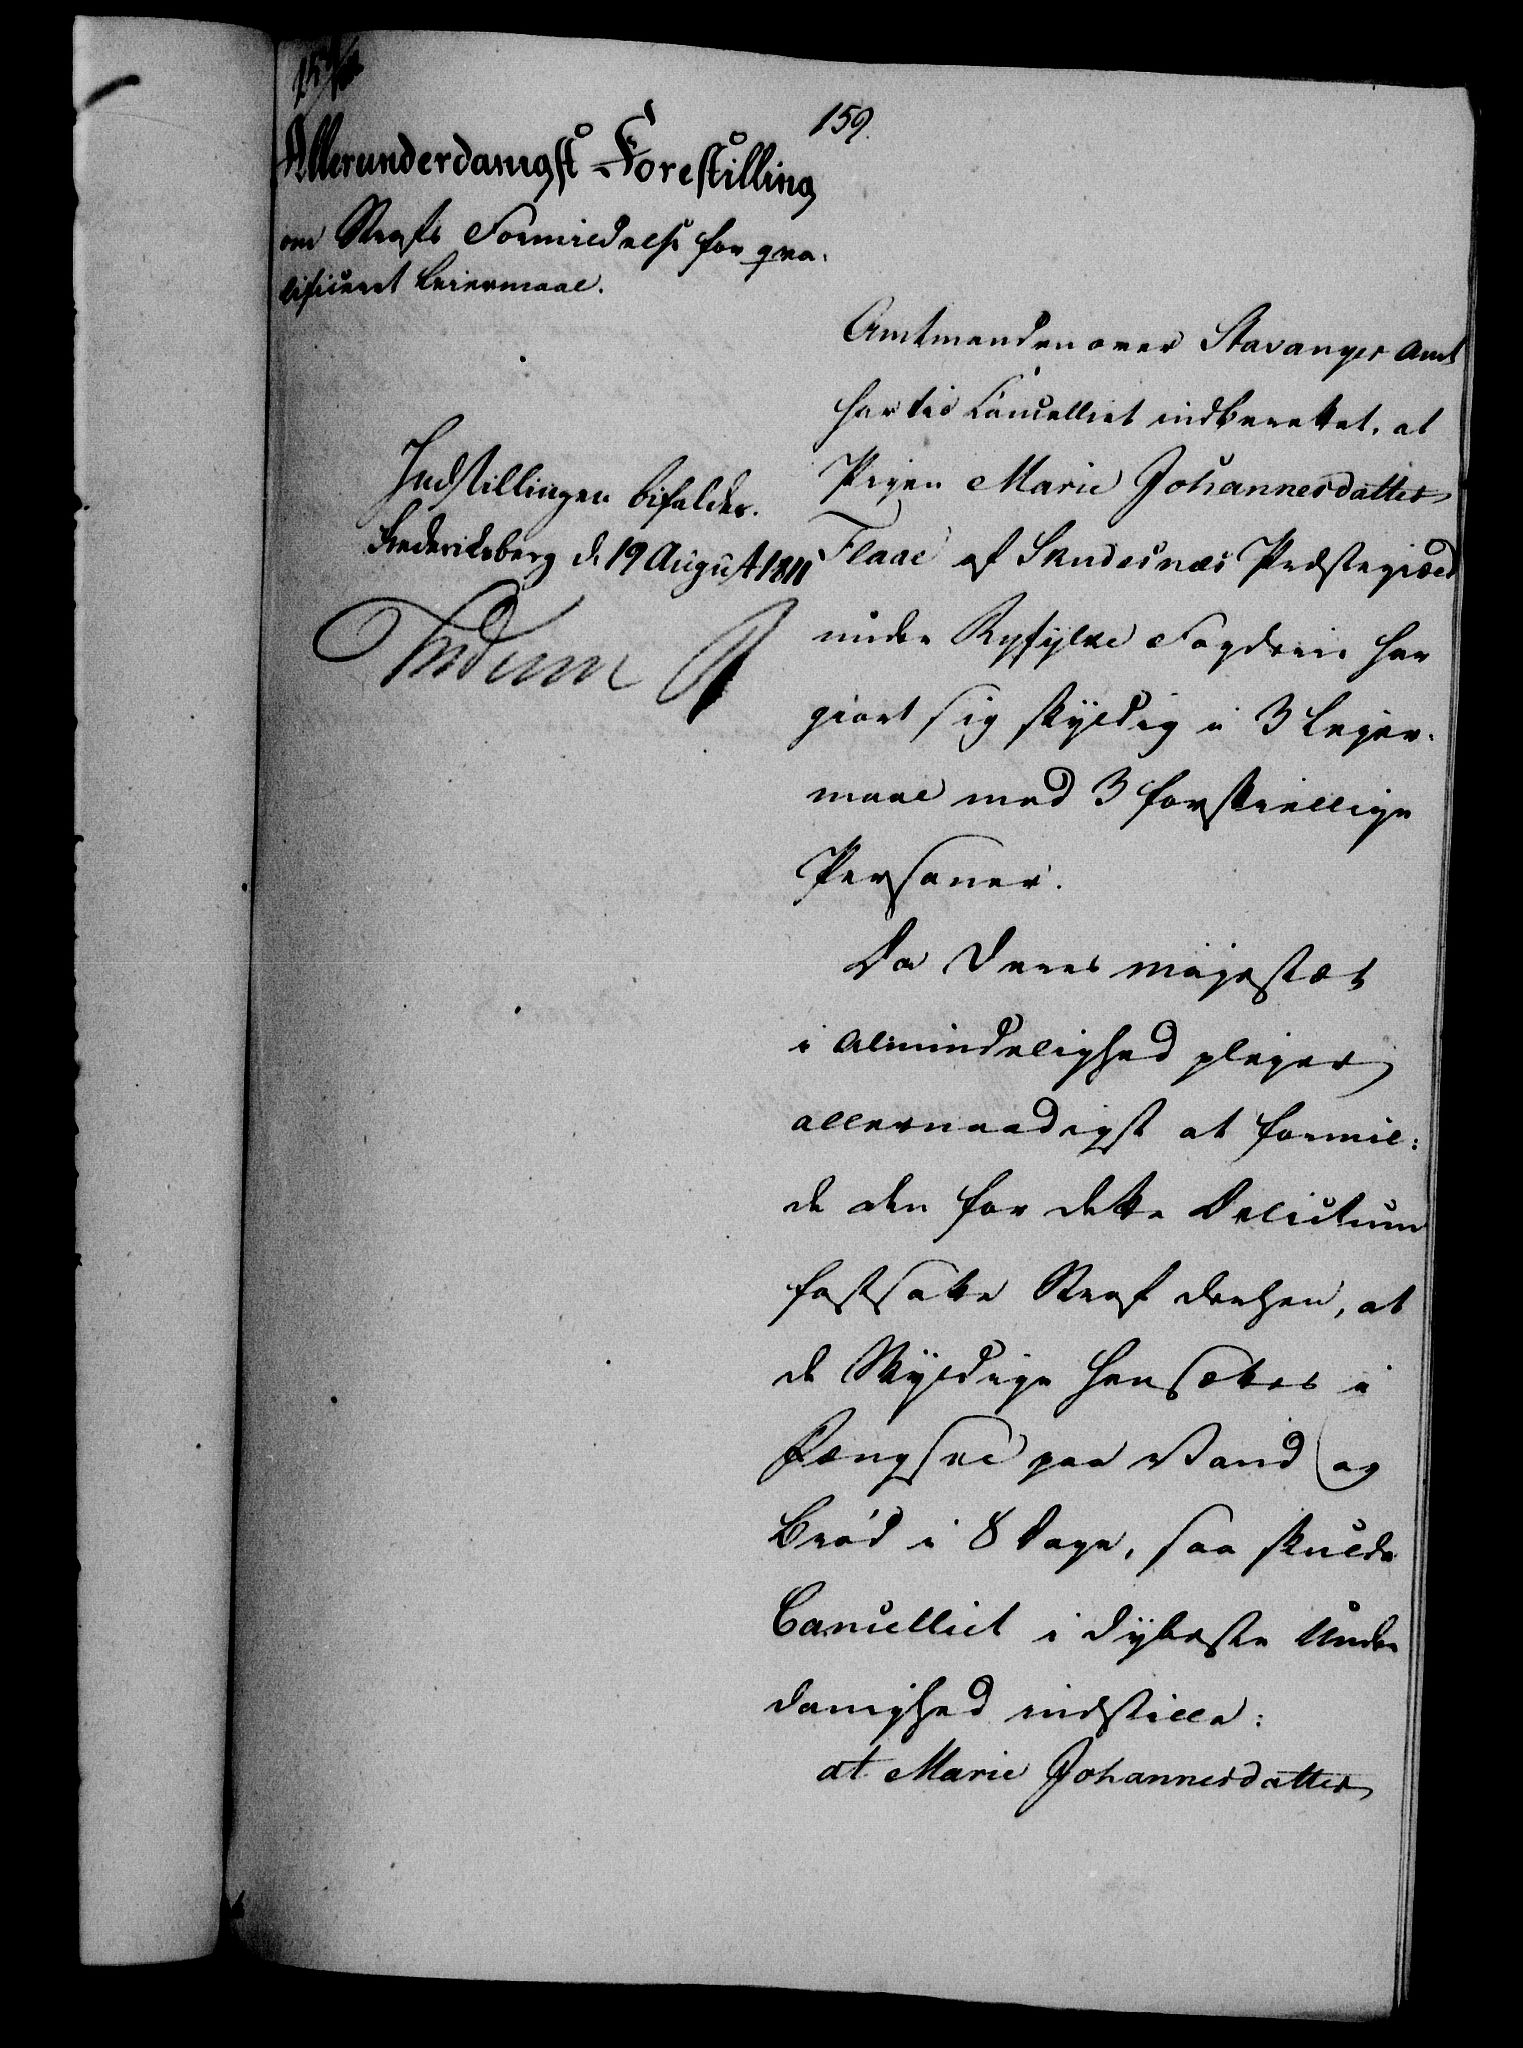 159.
Allerunderdanigst Forestilling
om Straffs Formildelse for qva-
lificeret Leiermaal.
Indstillingen bifaldes.
Frederiksberg d. 19 August 1811
Frederik R
Amtmanden over Stavanger Amt
har til Cancelliet indberettet, at
Pigen Marie Johannesdatter
Flaae af Skudesnæs Præstegiæld
under Ryfylke Fogderie har
giort sig skyldig i 3 Lejer-
maal med 3 forskiellige
Personer.
Da Deres Majestæt
i Almindelighed plejer
allernaadigst at formil:
de den for dette Delictum
fastsatte Straf derhen, at
de Skyldige hensættes i
Fængsel paa Vand og
Brød i 8 Dage, saa skulde
Cancelliet i dybeste Under
danighed indstille:
at Marie Johannesdatter